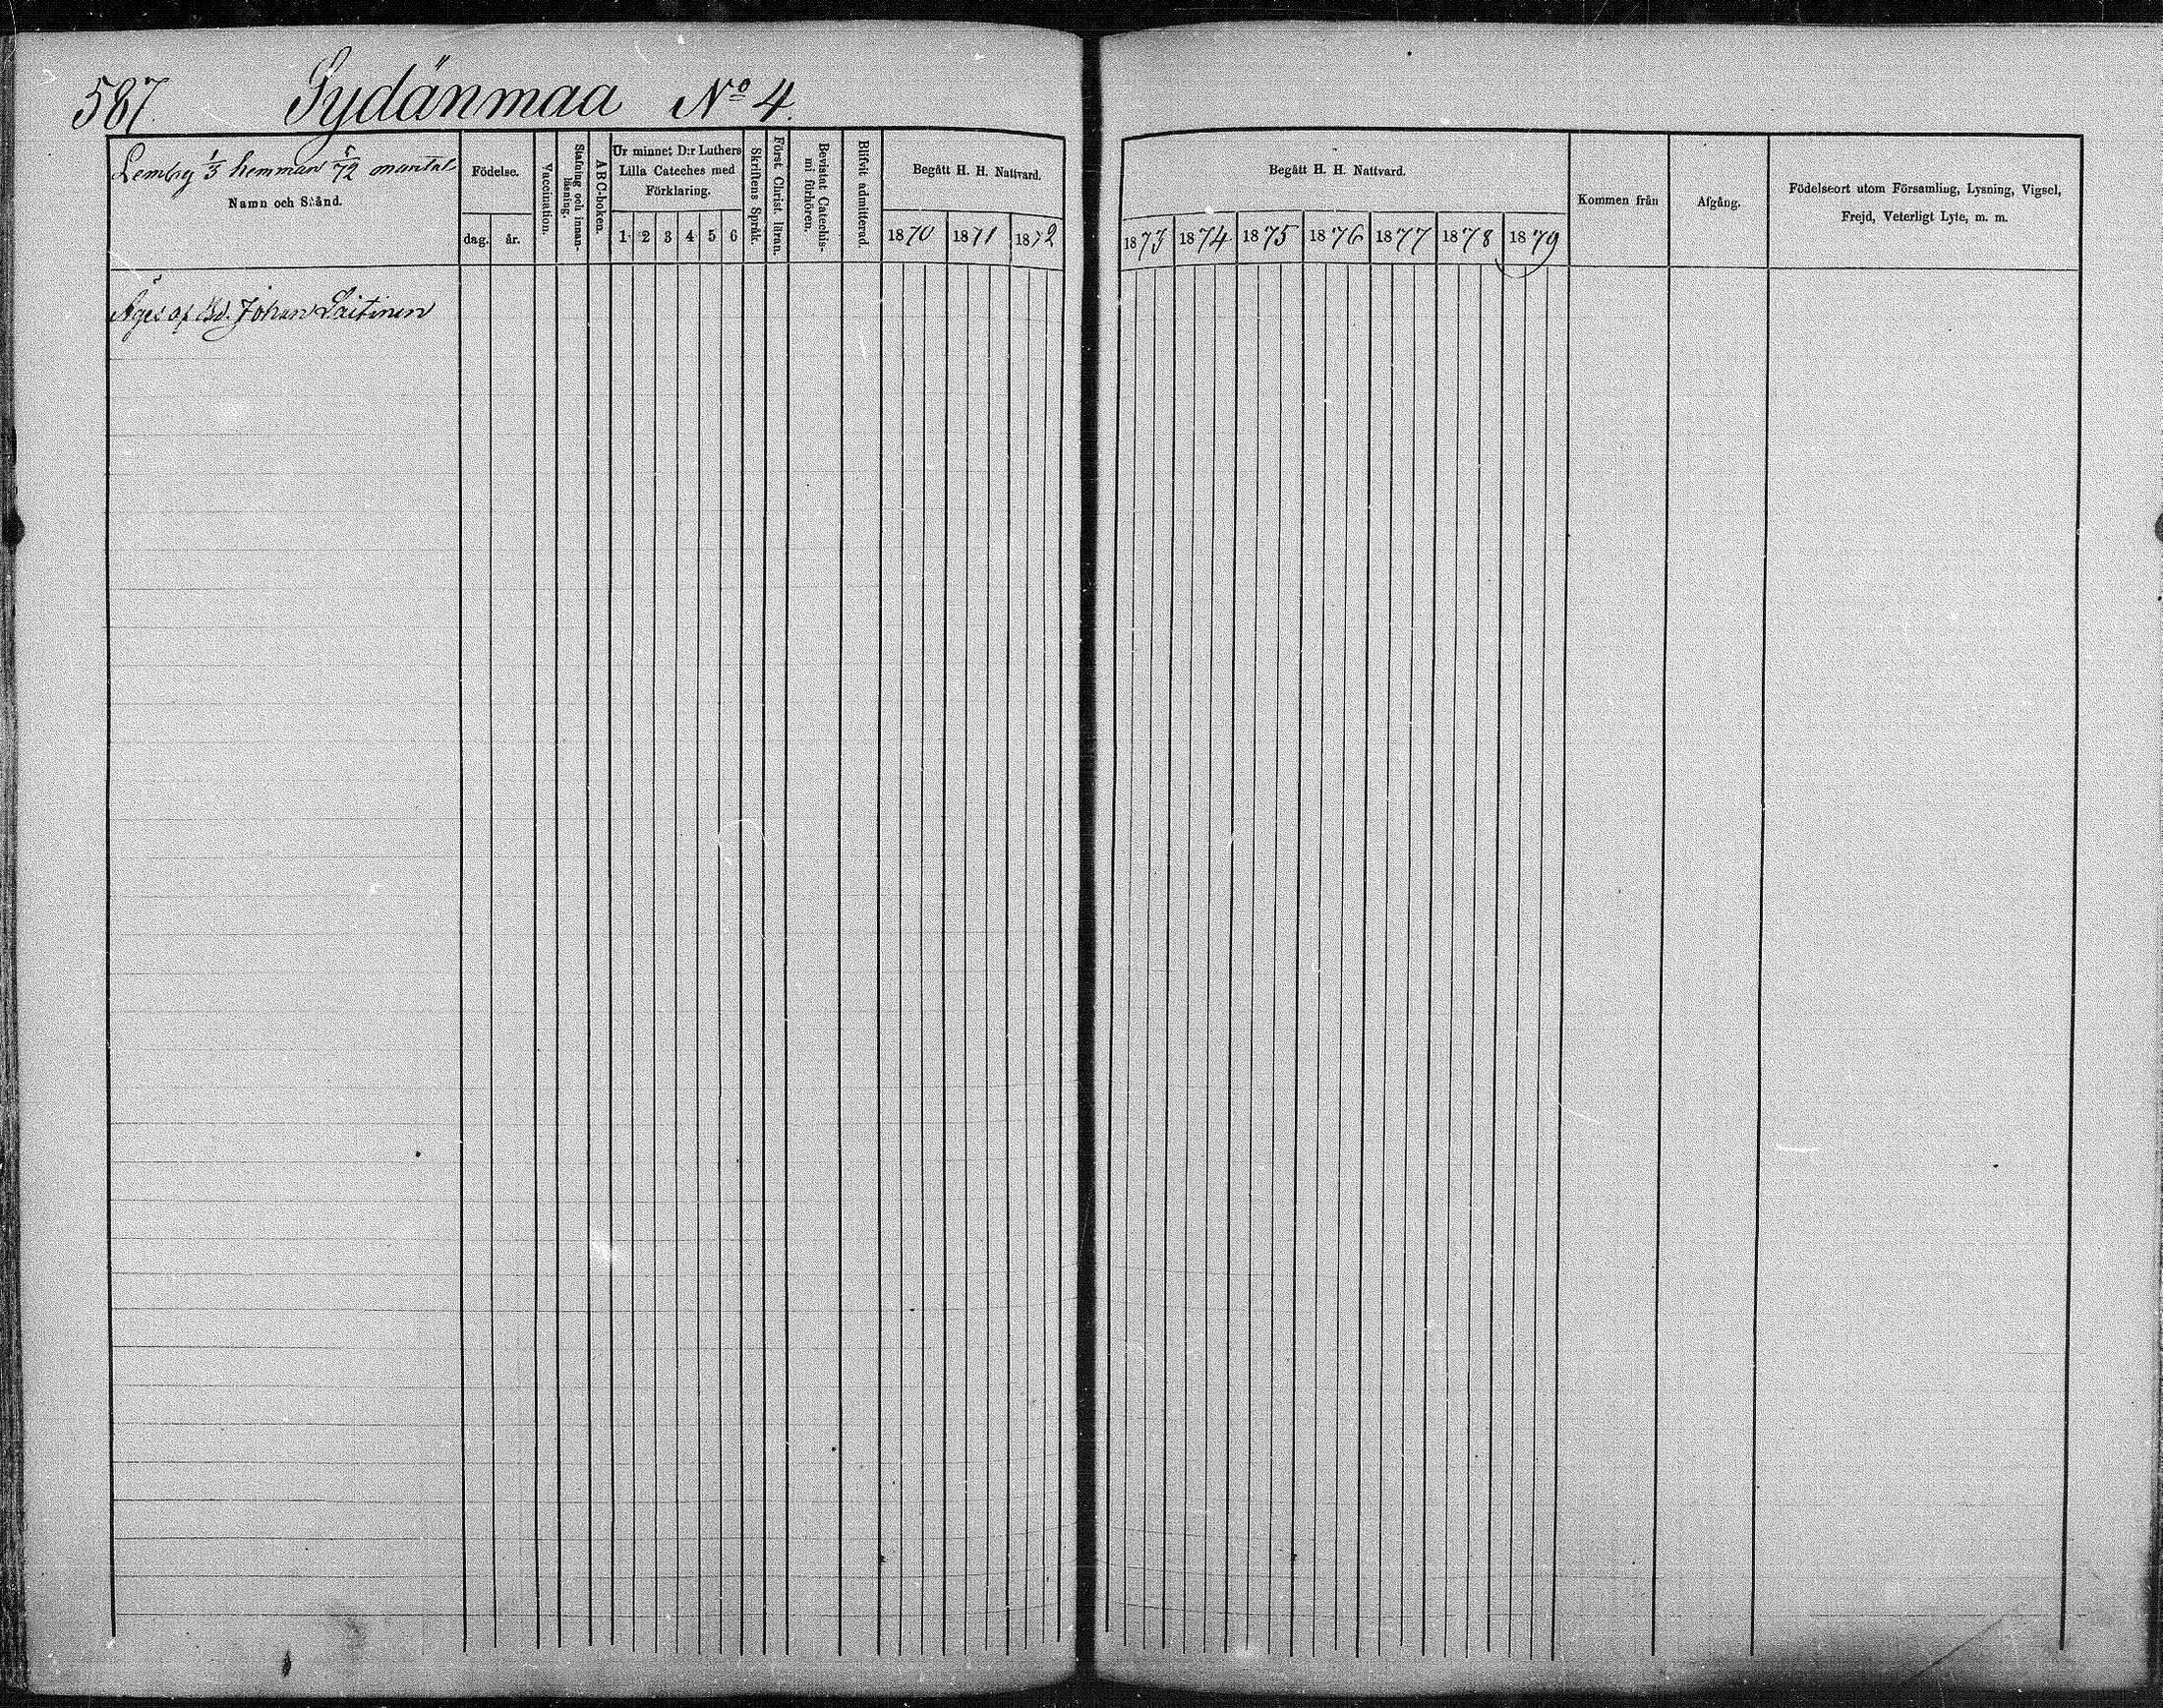 587. Sydänmaa No 4.
1/3 hemman mantal
Namn och Stånd.
Födelse.
dag. år.
Vaccination.
Stafning och innan-
läsning.
ABC-boken.
Ur minnet D:r Luthers
Lilla Cateches med
Förklaring.
1 2 3 4 5 6
Skriftens Språk.
Först. Christ. läran.
Bevistat Catechis-
mi förhören.
Blifvit admitterad
Begått H. H. Nattvard.
1870 1871 1872
Begått H. H. Nattvard.
1873 1874 1875 1876 1877 1878 1879
Kommen från
Afgång.
Födelseort utom Församling, Lysning, Vigsel,
Frejd, Veterligt Lyte, m. m.
Äges af Bd. Johan Laitinen